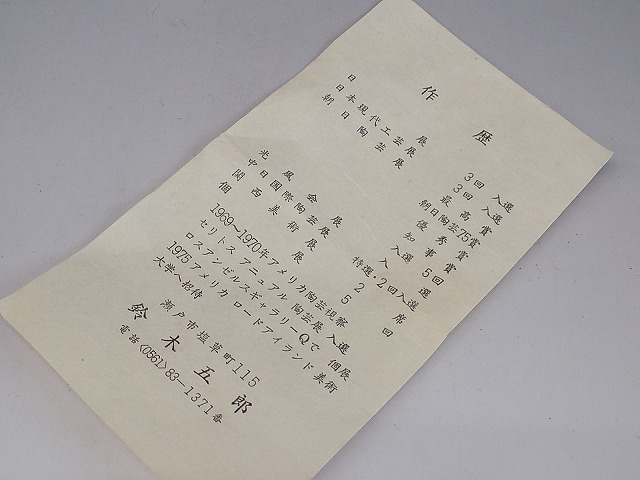 作歴
日展 3回入選
日本現代工芸展 3回入選
朝日陶芸展 最高賞
朝日陶芸75賞
優秀賞
知事賞
入選5回
北風会展 入選
中日国際陶芸展 特選・2回入選
関西美術展 2席
個展 5回
1969〜1970年アメリカ陶芸視察
セリトス アニュアル 陶芸展入選
ロスアンゼルスギャラリーQで個展
1975アメリカ ロードアイランド美術
大学へ招待
瀬戸市塩草町115
鈴木五郎
電話〈0561〉83―1371番